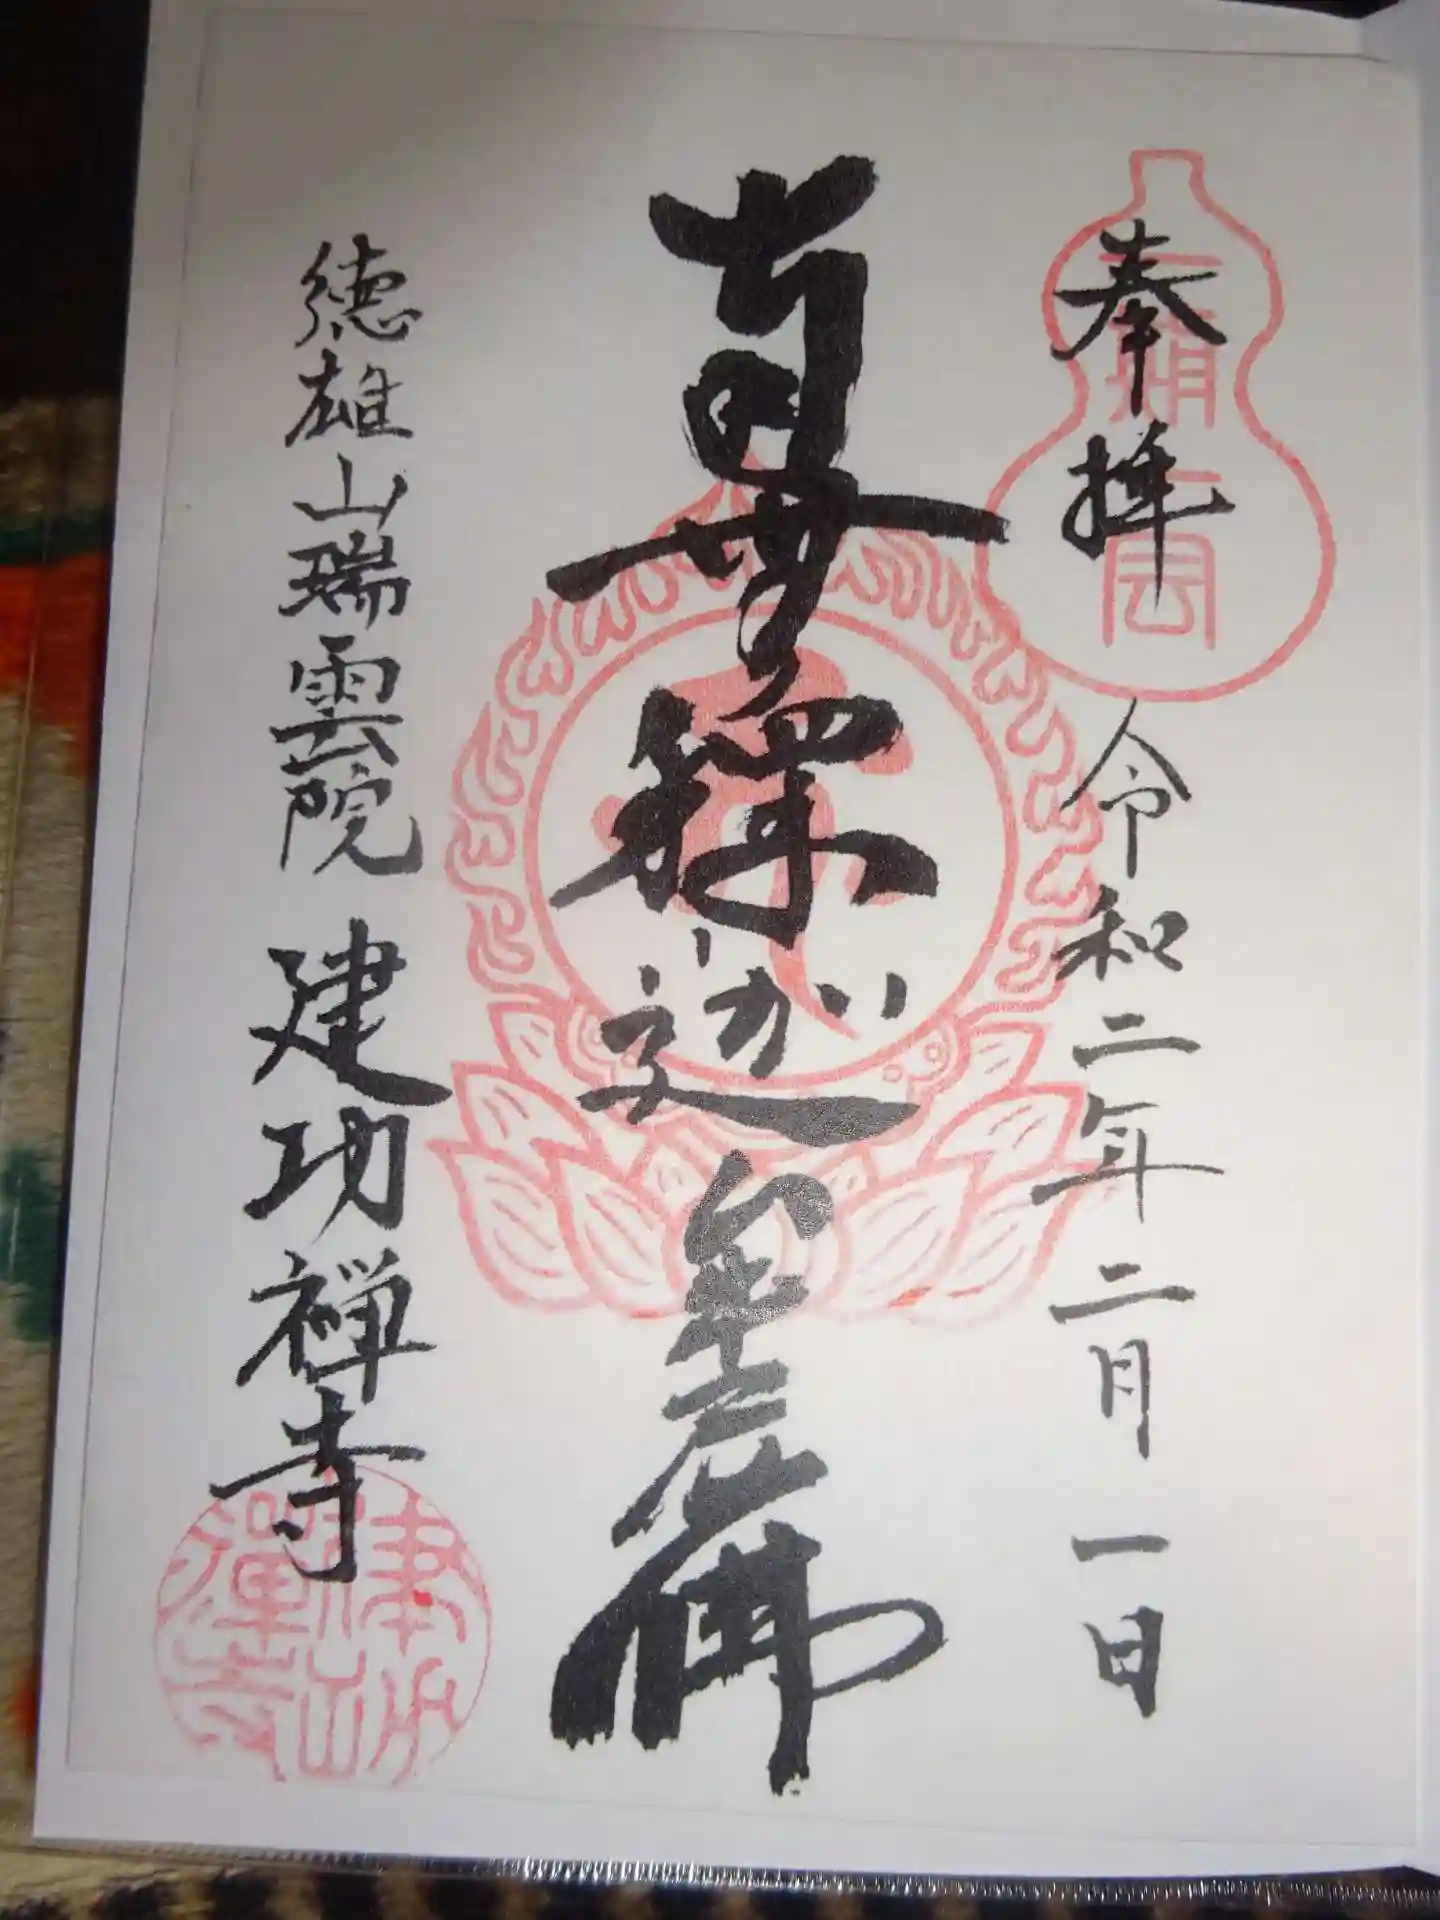 奉拝
令和二年二月一日
南無釋迦牟尼佛
徳雄山瑞雲院 建功禅寺
建功禅寺